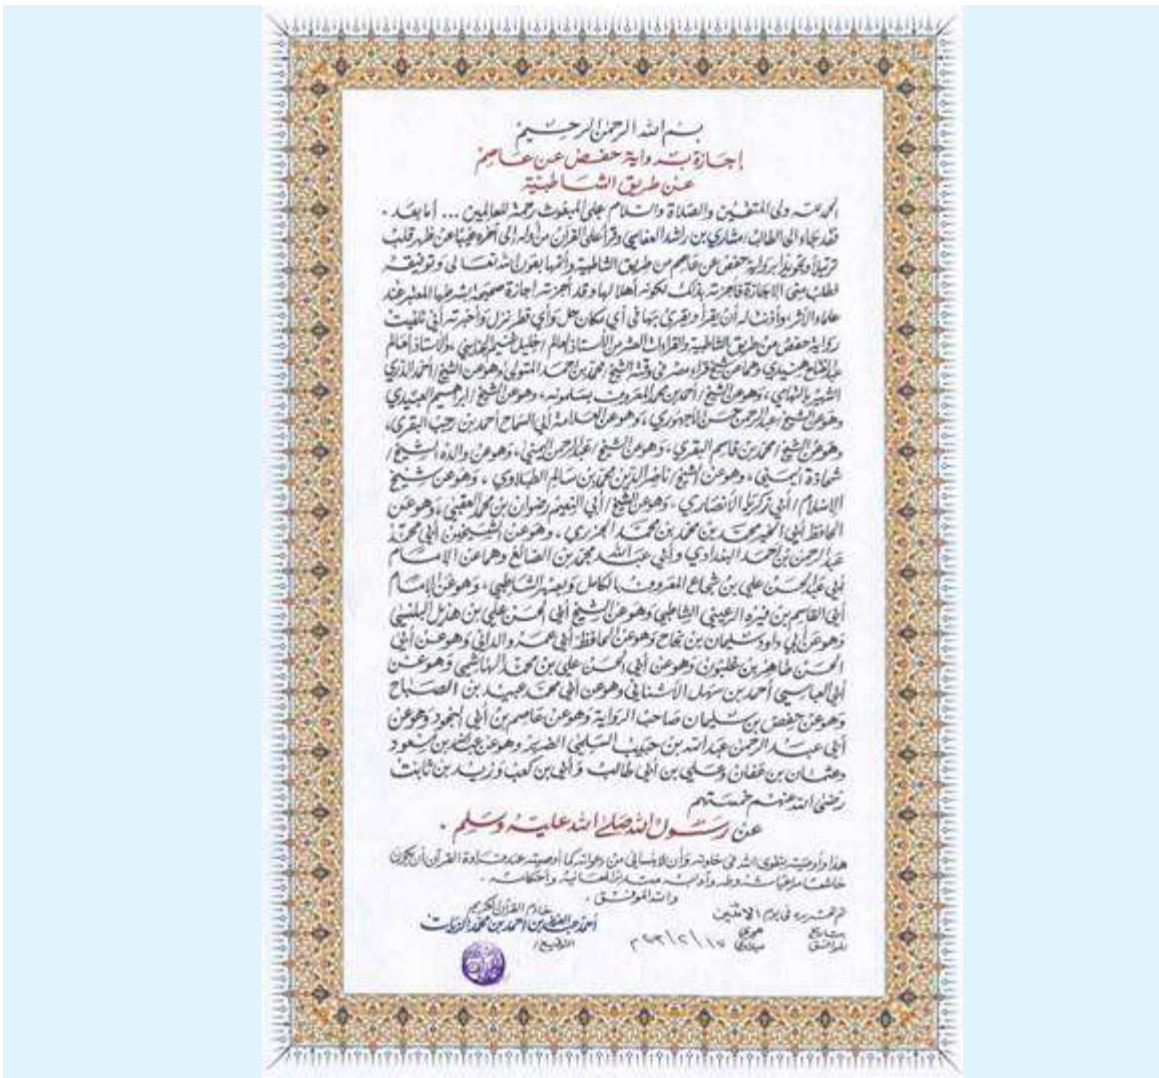 بسم الله الرحمن الرحيم
إجازة برواية حفص عن عاصم
عن طريق الشاطبية
الحمد لله ولي المتقين والصلاة والسلام على المبعوث رحمة للعالمين ... أما بعد .
فقد جاء الى الطالب / مشاري بن راشد العفاسي وقرأ على القرآن من أوله إلى آخره غيبًا عن ظهر قلب
ترتيلاً وتجويدًا برواية حفص عن عاصم من طريق الشاطبية وأتمها بعون الله تعالى وتوفيقه
فطلب مني الإجازة فأجزته بذلك لكونه أهلا لها وقد أجزته إجازة صحيحة بشرطها المعتبر عند
علماء الأثر وأذنت له أن يقرأ ويقرئ بها في أي مكان حل وأي قطر نزل وأخبرته أني تلقيت
رواية حفص من طريق الشاطبية والقراءات العشر من الأستاذ العالم / خليل غنيم الجنايني ، والاستاذ العالم
عبد الفتاح هنيدي وهما عن شيخ قراء مصر في وقته الشيخ / محمد بن احمد المتولى وهو عن الشيخ / أحمد الدري
الشهير بالتهامي ، وهو عن الشيخ / أحمد بن محمد المعروف بسلمونه ، وهو عن الشيخ / إبراهيم العبيدي
وهو عن الشيخ / عبد الرحمن حسن الأجهوري ، وهو عن العلامة أبي السماح أحمد بن رجب البقري ،
وهو عن الشيخ / محمد بن قاسم البقري ، وهو عن الشيخ / عبد الرحمن اليمني ، وهو عن والده الشيخ /
شحاذة اليمني ، وهو عن الشيخ / ناصر الدين محمد بن سالم الطبلاوي ، وهو عن شيخ
الإسلام / أبي زكريا الأنصاري ، وهو عن الشيخ / أبي النعيم رضوان بن محمد العقبي ، وهو عن
الحافظ أبي الخير محمد بن محمد بن محمد الجزري . وهو عن الشيخين أبي محمد
عبد الرحمن بن أحمد البغدادي وأبي عبد الله محمد بن الصائغ وهما عن الإمام
أبي عبد الحسن علي بن شجاع المعروف بالكامل وبصهر الشاطبي ، وهو عن الإمام
أبي القاسم بن فيره الرعيني الشاطبي وهو عن الشيخ أبي الحسن علي بن هذيل البلنسي
وهو عن أبي داود سليمان بن نجاح وهو عن الحافظ أبي عمرو الداني وهو عن أبي
الحسن طاهر بن غلبون وهو عن أبي الحسن علي بن محمد الهاشمي وهو عن
أبي العباس أحمد بن سهل الأشناني وهو عن أبي محمد عبيد بن الصباح
وهو عن حفص بن سليمان صاحب الرواية وهو عن عاصم بن أبي النجود وهو عن
أبي عبد الرحمن عبد الله بن حبيب السلمي الضرير وهو عن عبد الله بن مسعود
وعثمان بن عفان وعلي بن أبي طالب وأبي بن كعب وزيد بن ثابت
رضي الله عنهم خمستهم
عن رسول الله صلى الله عليه وسلم .
هذا وأوصيته بتقوى الله في خلوته وأن لا ينساني من دعواته كما أوصيته عند قراءة القرآن أن يكون
خاشعا مراعيا شروطه وآدابه متدبرًا لمعانيه وأحكامه .
والله الموفق .
تم تحريره في يوم الاثنين
خادم القرآن الكريم
بتاريخ هجري
أحمد عبد العزيز بن أحمد بن محمد الزيات
الموافق ١٧ / ٢ / ٩٢ م ميلادي
التوقيع /